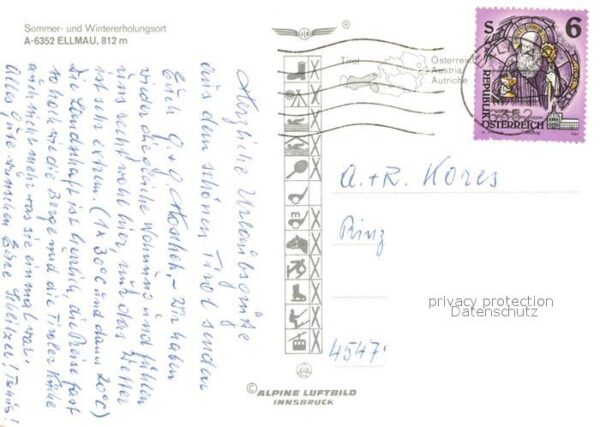 Sommer- und Wintererholungsort
A-6352 ELLMAU, 812 m
Tirol
Österreich
Austria
Autriche
S 6
REPUBLIK
ÖSTERREICH
6352
Herzliche Urlaubsgrüße
aus dem schönen Tirol senden
Euch G. + G. – Wir haben
wieder die gleiche Wohnung und fühlen
uns recht wohl hier, nur das Wetter
ist sehr extrem. (1x 30°C und dann 20°C)
Die Landschaft ist lieblich, die Preise fast
so hoch wie die Berge und die Tiroler Küche
auch nicht mehr was sie einmal war.
Alles gute wünschen Eure
A. + R. Kores
Rinz
4547
privacy protection
Datenschutz
© ALPINE LUFTBILD
INNSBRUCK